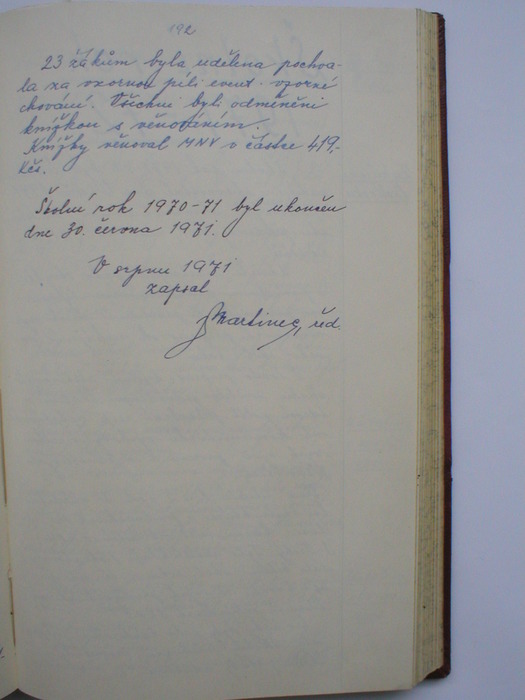 192
23 žákům byla udělena pochva-
la za vzornou píli event. vzorné
chování. Všichni byli odměněni
knížkou s věnováním.
Knížky věnoval MNV v částce 419,-
Kčs.
Školní rok 1970-71 byl ukončen
dne 30. června 1971.
V srpnu 1971
zapsal
Martinec, řed.